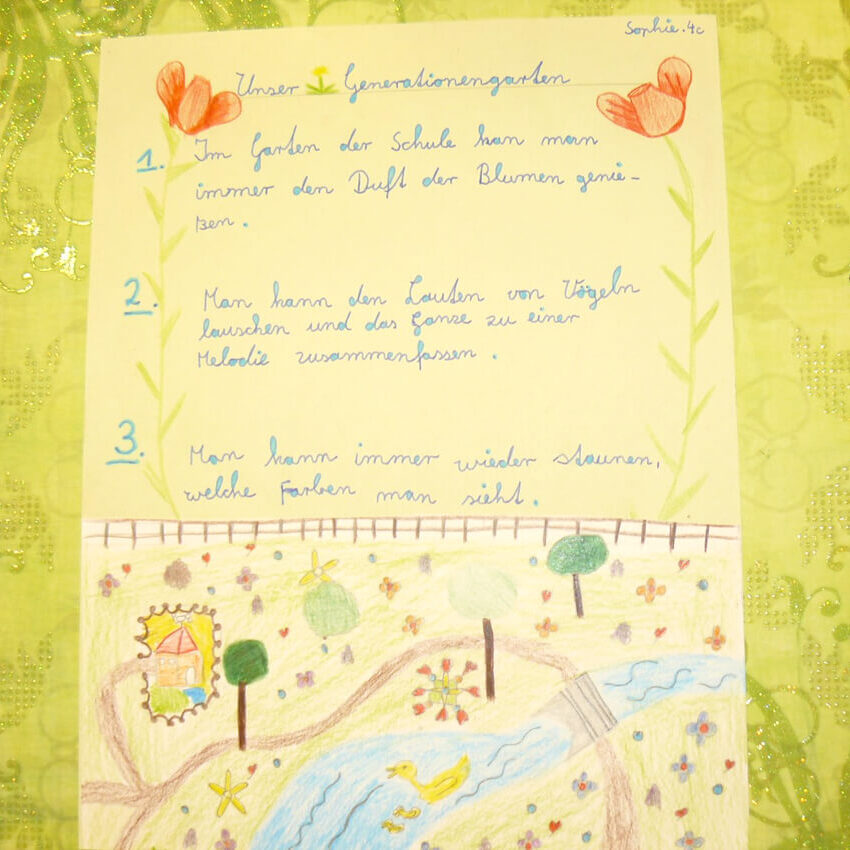 Sophie. 4c
Unser Generationengarten
1. Im Garten der Schule kan man
immer den Duft der Blumen genie-
ßen.
2. Man kann den Lauten von Vögeln
lauschen und das Ganze zu einer
Melodie zusammenfassen.
3. Man kann immer wieder staunen,
welche Farben man sieht.